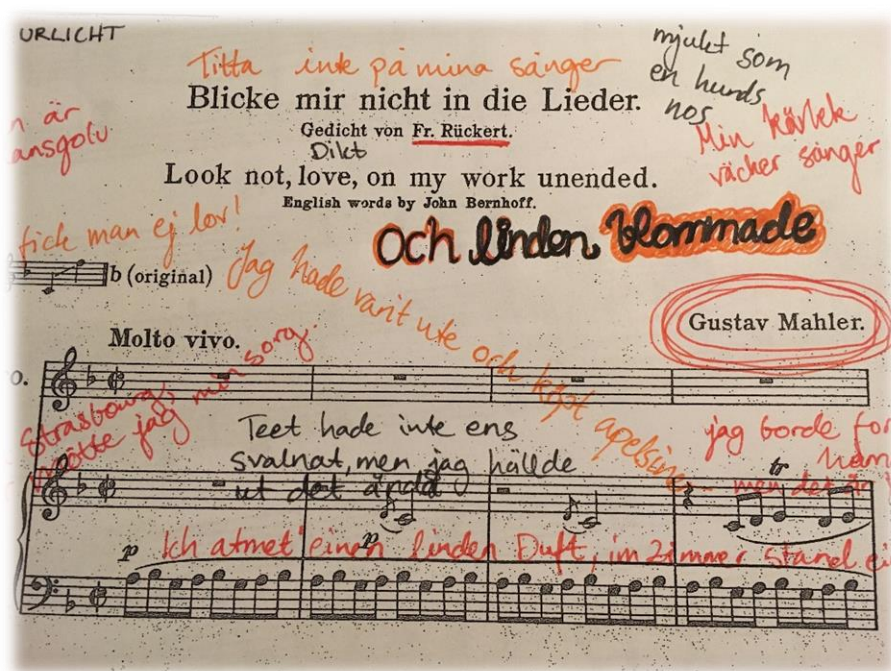 URLICHT
Titta inte på mina sånger
mjukt som
en hunds
nos
Blicke mir nicht in die Lieder.
Gedicht von Fr. Rückert.
Dikt
är
Min kärlek
väcker sånger
Look not, love, on my work unended.
English words by John Bernhoff.
och linden blommade
fick man ej lov!
b (original)
Jag hade varit ute och köpt apelsiner
Gustav Mahler.
Molto vivo.
o.
Strasbourg,
mötte jag min sorg.
Teet hade inte ens
svalnat, men jag hällde
ut det ändå
jag borde
men det är
tr
p
p
Ich atmet' einen linden Duft, im Zimmer stand ei